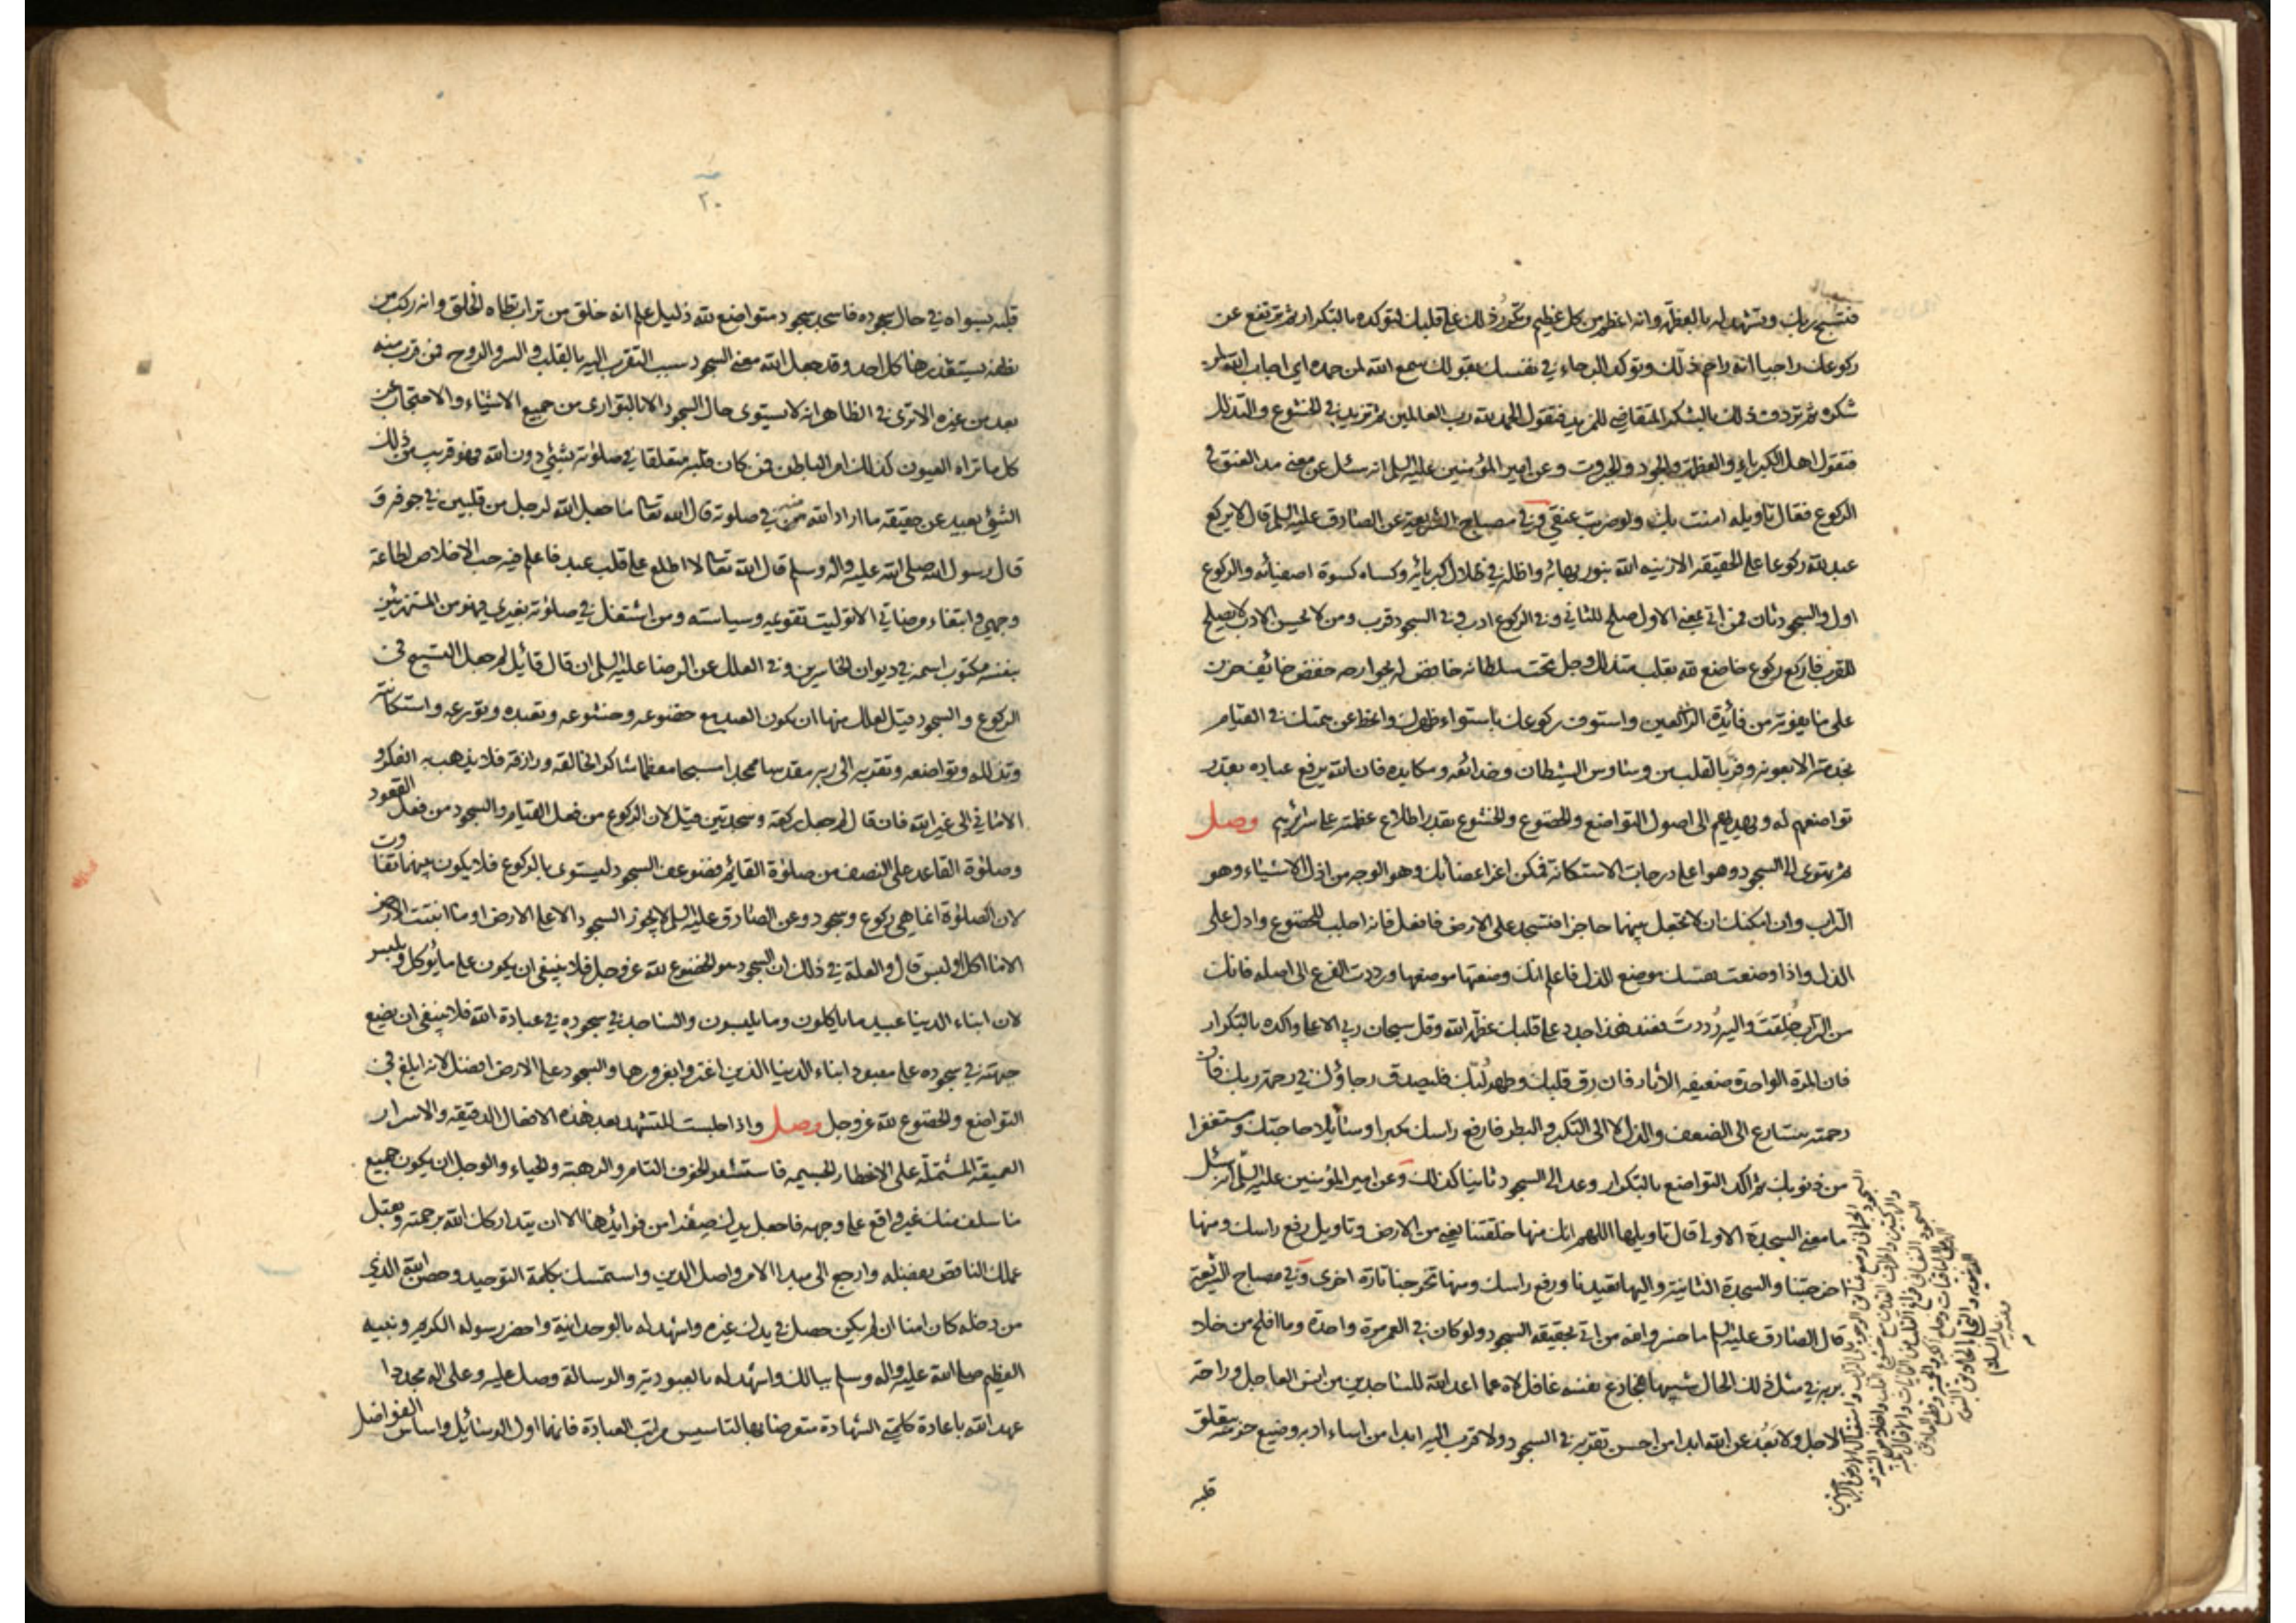 فتسبح ربك وتشهد له بالعظمة وانه اعظم من كل عظيم وتكرر ذلك على قلبك لتوكده بالتكرار ثم ترتفع عن
ركوعك راجيا انه راحم ذلك وتوكد الرجاء في نفسك بقولك سمع الله لمن حمده اي اجاب الله لمن
شكره ثم تردف ذلك بالشكر المتقاضي للمزيد فتقول الحمد لله رب العالمين ثم تزيد في الخشوع والتذلل
فتقول اهل الكبرياء والعظمة والجود والجبروت وعن امير المؤمنين عليه السلم انه سئل عن معنى مد العنق في
الركوع فقال تاويله امنت بك ولو ضربت عنقي وفي مصباح الشريعة عن الصادق عليه السلم قال لا يركع
عبد لله ركوعا على الحقيقة الا زينه الله بنور بهائه واظله في ظلال كبريائه وكساه كسوة اصفيائه والركوع
اول والسجود ثان فمن اتى بمعنى الاول صلح للثاني وفي الركوع ادب وفي السجود قرب ومن لا يحسن الادب لا يصلح
للقرب فاركع ركوع خاضع لله بقلب متذلل وجل تحت سلطانه خافض له بجوارحه خفض خائف حزن
على ما يفوته من فائدة الراكعين واستوف ركوعك باستواء ظهرك وانحط عن همتك في القيام
بخدمته الا بعونه وفر بالقلب من وساوس الشيطان وخدائعه ومكايده فان الله يرفع عباده بقدر
تواضعهم له ويهديهم الى اصول التواضع والخضوع والخشوع بقدر اطلاع عظمته على سرائرهم وصل
ثم تهوى الى السجود وهو اعلى درجات الاستكانة فمكن اعز اعضائك وهو الوجه من اذل الاشياء وهو
التراب وان امكنك ان لا تجعل بينهما حاجزا فتسجد على الارض فافعل فانه اجلب للخضوع وادل على
الذل واذا وضعت نفسك موضع الذل فاعلم انك وضعتها موضعها ورددت الفرع الى اصله فانك
من التراب خُلِقتَ واليه رُددتَ فعند هذا جدد على قلبك عظمة الله وقل سبحان ربي الاعلى واكده بالتكرار
فان المرة الواحدة ضعيفة الاثار فان رق قلبك وطهر لُبّك فليصدق رجاؤك في رحمة ربك فان
رحمته يتسارع الى الضعف والذل لا الى التكبر والبطر فارفع راسك مكبرا وسائلا حاجتك ومستغفرا
من ذنوبك ثم اكد التواضع بالتكرار وعد الى السجود ثانيا كذلك وعن امير المؤمنين عليه السلم انه سئل
ما معنى السجدة الاولى قال تاويلها اللهم انك منها خلقتنا يعني من الارض وتاويل رفع راسك ومنها
اخرجتنا والسجدة الثانية واليها تعيدنا ورفع راسك ومنها تخرجنا تارة اخرى وفي مصباح الشريعة
قال الصادق عليه السلم ما خسر والله من اتى بحقيقة السجود ولو كان في العمر مرة واحدة وما افلح من خلا
بربه في مثل ذلك الحال شبيها بمخادع نفسه غافل لاه عما اعد الله للساجدين من انس العاجل وراحة
الاجل ولا بَعُد عن الله ابدا من احسن تقربه في السجود ولا قرب اليه ابدا من اساء ادبه وضيع حرمته بتعلق
قلبه
السجود الجسماني وضع عتائق الوجوه على التراب واستقبال الارض بالراحتين
والركبتين واطراف القدمين مع خشوع القلب واخلاص النية و
السجود النفساني فراغ القلب من الفانيات والاقبال بكنه
الهمة على الباقيات وخلع الكبر والحمية وقطع العلائق
الدنيوية والتحلي بالاخلاق النبوية
٢٠
قلبه بسواه في حال سجوده فاسجد سجود متواضع لله ذليل علم انه خلق من تراب تطاه الخلق وانه ركب من
نطفة يستقذرها كل احد وقد جعل الله معنى السجود سبب التقرب اليه بالقلب والسر والروح فمن قرب منه
بعد من غيره الا ترى في الظاهر انه لا يستوى حال السجود الا بالتوارى من جميع الاشياء والاحتجاب عن
كل ما تراه العيون كذلك امر الباطن فمن كان قلبه متعلقا في صلوته بشئ دون الله فهو قريب من ذلك
الشئ بعيد عن حقيقة ما اراد الله منه في صلوته قال الله تعالى ما جعل الله لرجل من قلبين في جوفه و
قال رسول الله صلى الله عليه واله وسلم قال الله تعالى لا اطلع على قلب عبد فاعلم فيه حب الاخلاص لطاعة
وجهي وابتغاء مرضاتي الا توليت تقويمه وسياسته ومن اشتغل في صلوته بغيري فهو من المستهزئين
بنفسه مكتوب اسمه في ديوان الخاسرين وفي العلل عن الرضا عليه السلم ان قال قائل لم جعل التسبيح في
الركوع والسجود قيل لعلل منها ان يكون العبد مع خضوعه وخشوعه وتعبده وتورعه واستكانته
وتذلله وتواضعه وتقربه الى ربه مقدسا ممجدا مسبحا معظما شاكرا لخالقه ورازقه فلا يذهب به الفكر و
الاماني الى غير الله فان قال لم جعل ركعة وسجدتين قيل لان الركوع من فعل القيام والسجود من فعل القعود
وصلوة القاعد على النصف من صلوة القائم فضوعف السجود ليستوى بالركوع فلا يكون بينهما تفاوت
لان الصلوة انما هي ركوع وسجود وعن الصادق عليه السلم لا يجوز السجود الا على الارض او ما انبتت الارض
الا ما اكل او لبس قال والعلة في ذلك ان السجود هو الخضوع لله عز وجل فلا ينبغي ان يكون على ما يؤكل ويلبس
لان ابناء الدنيا عبيد ما ياكلون وما يلبسون والساجد في سجوده في عبادة الله فلا ينبغي ان يضع
جبهته في سجوده على معبود ابناء الدنيا الذين اغتروا بغرورها والسجود على الارض افضل لانه ابلغ في
التواضع والخضوع لله عز وجل وصل واذا جلست للتشهد بعد هذه الافعال الدقيقة والاسرار
العميقة المشتملة على الاخطار الجسيمة فاستشعر الخوف التام والرهبة والحياء والوجل ان يكون جميع
ما سلف منك غير واقع على وجهه فاجعل يدك صفرا من فوائدها الا ان يتداركك الله برحمته ويقبل
عملك الناقص بفضله وارجع الى مبدا الامر واصل الدين واستمسك بكلمة التوحيد وحصن الله الذي
من دخله كان امنا ان لم يكن حصل في يدك غيره واشهد له بالوحدانية واحضر رسوله الكريم ونبيه
العظيم صلى الله عليه واله وسلم ببالك واشهد له بالعبودية والرسالة وصل عليه وعلى اله مجددا
عهد الله باعادة كلمتي الشهادة متعرضا بها لتاسيس مراتب العبادة فانهما اول الوسائل واساس الفواضل